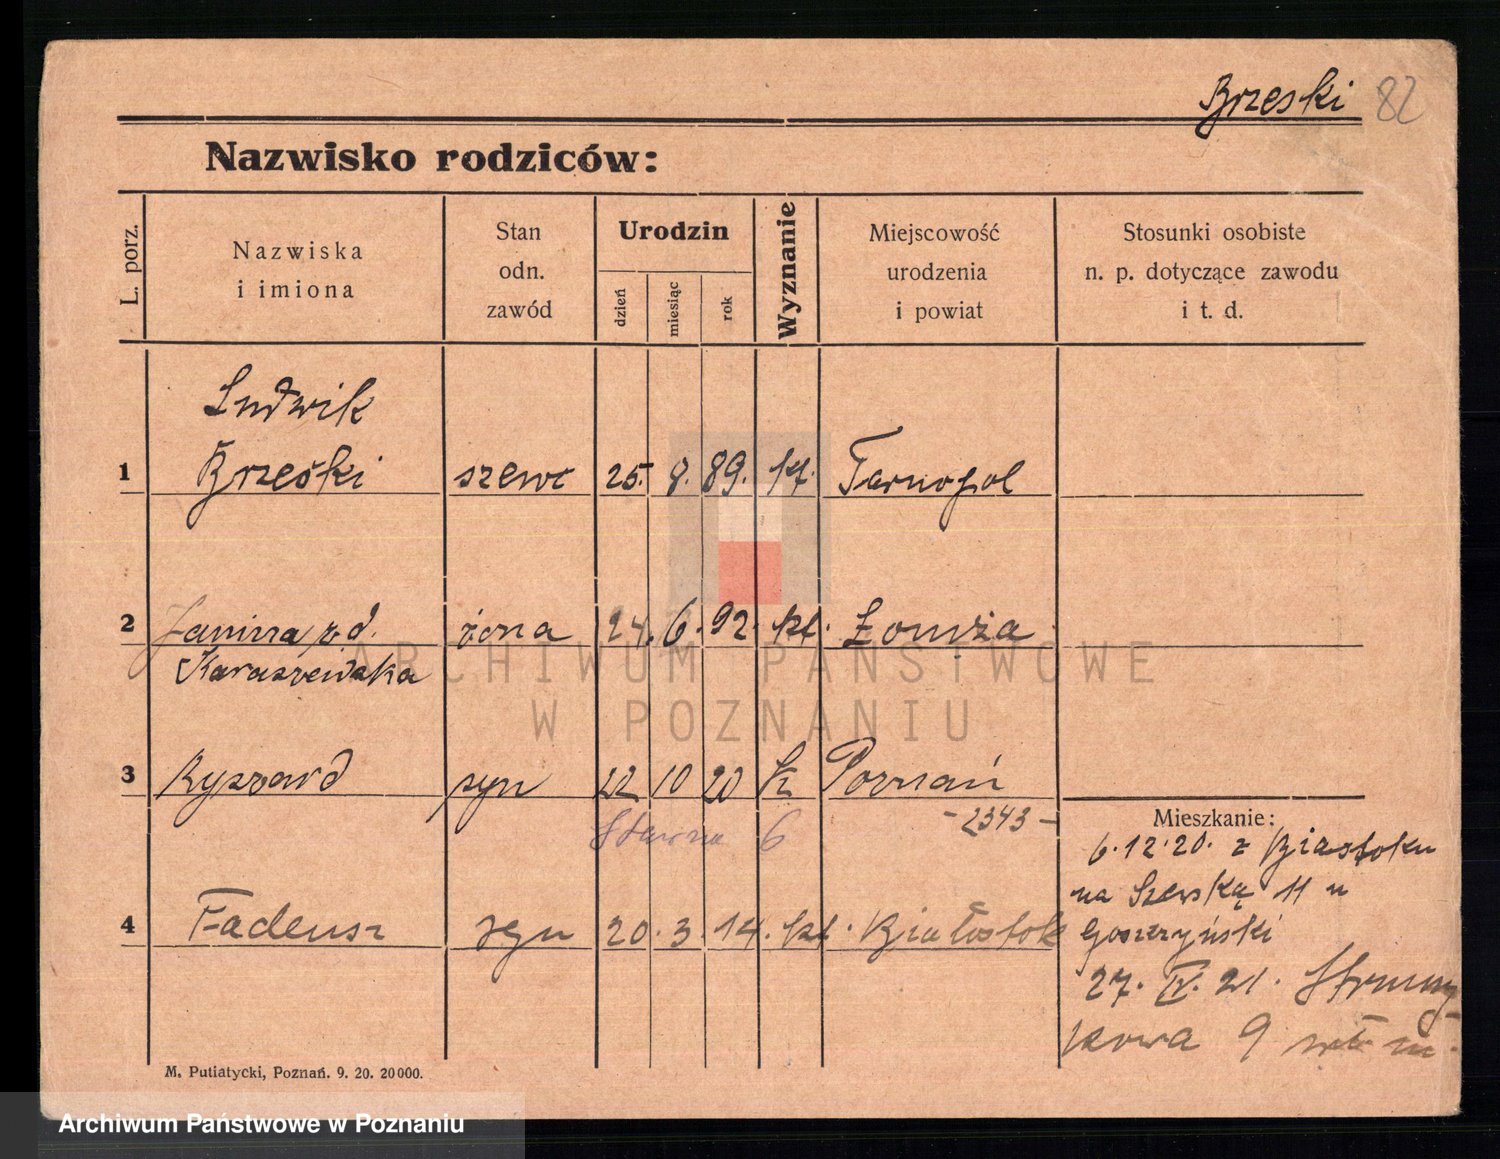 Brzeski 82
Nazwisko rodziców:
L. porz.
Nazwiska
i imiona
Stan
odn.
zawód
Urodzin
dzień
miesiąc
rok
Wyznanie
Miejscowość
urodzenia
i powiat
Stosunki osobiste
n. p. dotyczące zawodu
i t. d.
Ludwik
1 Brzeski szewc 25. 8. 89. kt. Tarnopol
2 Janina zd. żona 24. 6. 92. kt. Łomża
Karaszewska
3 Ryszard syn 22 10 20 k Poznań
- 2343 -
Sławna 6
4 Tadeusz syn 20. 3. 14. kt. Białostok
Mieszkanie:
6.12.20. z Białostoku
na Szewską 11 u
Goszczyński
27. IV. 21. Strumy-
kowa 9
M. Putiatycki, Poznań. 9. 20. 20000.
ARCHIWUM PAŃSTWOWE
W POZNANIU
Archiwum Państwowe w Poznaniu